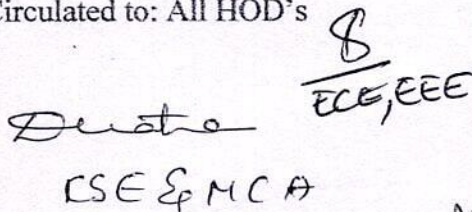 Circulated to: All HOD's
ECE, EEE
CSE & MCA